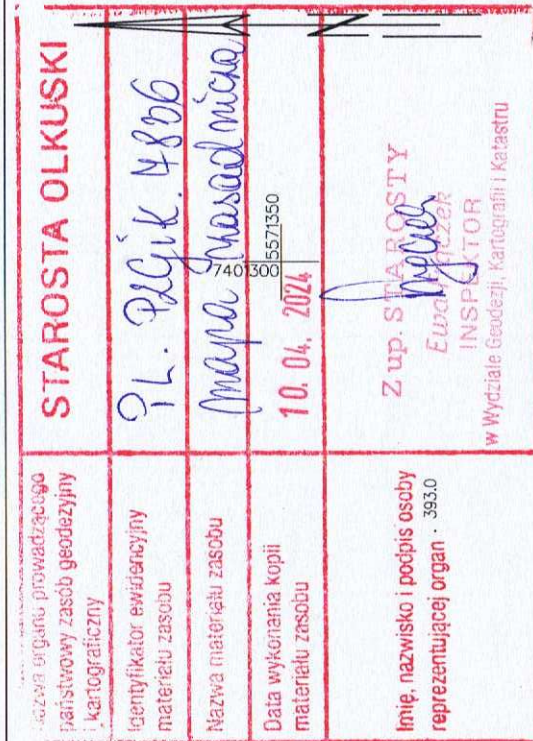 Nazwa organu prowadzącego
państwowy zasób geodezyjny
i kartograficzny
STAROSTA OLKUSKI
Identyfikator ewidencyjny
materiału zasobu
PL. PZGiK. 4836
Nazwa materiału zasobu
mapa zasadnicza
74013005571350
Data wykonania kopii
materiału zasobu
10. 04. 2024
Imię, nazwisko i podpis osoby
reprezentującej organ
393.0
Z up. STAROSTY
Ewa
INSPEKTOR
w Wydziale Geodezji, Kartografii i Katastru